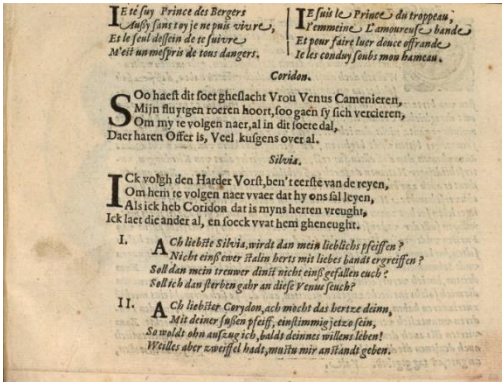 IE té suy Prince des Bergers
Aussy sans toy je ne puis vivre,
Et le seul dessein de te suivre
M'est un mespris de tous dangers.
IE suis le Prince du troppeau,
I'emmeine L'amoureuse bande
Et pour faire luer douce offrande
Ie les conduy soubs mou hameau.
Coridon.
SOo haest dit soet gheslacht Vrou Venus Camenieren,
Mijn fluytgen roeren hoort, soo gaen sy sich vercieren,
Om my te volgen naer, al in dit soete dal,
Daer haren Offer is, Veel kusgens over al.
Silvia.
ICk volgh den Harder Vorst, ben't eerste van de reyen,
Om hem te volgen naer vvaer dat hy ons sal leyen,
Als ick heb Coridon dat is myns herten vreught,
Ick laet die ander al, en soeck vvat hem gheneught.
I. ACh liebste Silvia, wirdt dan mein lieblichs pfeiffen?
Nicht einß ewer stalin herts mit liebes bandt ergreiffen?
Soll dan mein treuwer dinst nicht einß gefallen euch?
Soll ich dan sterben gahr an diese Venus seuch?
II. ACh liebster Corydon, ach mocht das hertze deinn,
Mit deiner sußen pfeiff, einstimmig jetzo sein,
So woldt ohn aufzug ich, baldt deinnes willens leben!
Weilles aber zweiffel hadt, mustu mir anstandt geben.